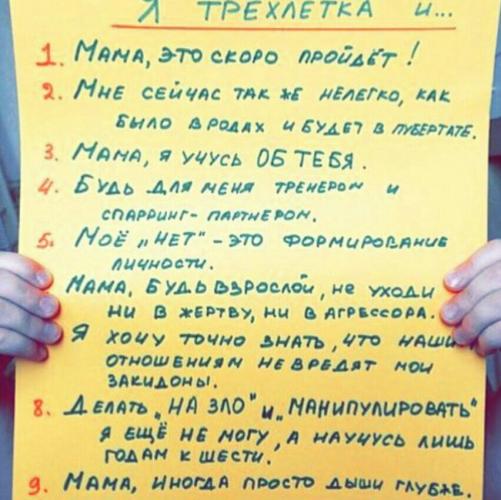 Я ТРЕХЛЕТКА и...
1. МАМА, ЭТО СКОРО ПРОЙДЁТ!
2. МНЕ СЕЙЧАС ТАК ЖЕ НЕЛЕГКО, КАК
БЫЛО В РОДАХ И БУДЕТ В ПУБЕРТАТЕ.
3. МАМА, Я УЧУСЬ ОБ ТЕБЯ.
4. БУДЬ ДЛЯ МЕНЯ ТРЕНЕРОМ И
СПАРРИНГ-ПАРТНЕРОМ.
5. МОЁ „НЕТ" - ЭТО ФОРМИРОВАНИЕ
ЛИЧНОСТИ.
МАМА, БУДЬ ВЗРОСЛОЙ, НЕ УХОДИ
НИ В ЖЕРТВУ, НИ В АГРЕССОРА.
Я ХОЧУ ТОЧНО ЗНАТЬ, ЧТО НАШИМ
ОТНОШЕНИЯМ НЕ ВРЕДЯТ МОИ
ЗАКИДОНЫ.
8. ДЕЛАТЬ „НА ЗЛО" И „МАНИПУЛИРОВАТЬ"
Я ЕЩЁ НЕ МОГУ, А НАУЧУСЬ ЛИШЬ
ГОДАМ К ШЕСТИ.
9. МАМА, ИНОГДА ПРОСТО ДЫШИ ГЛУБЖЕ.